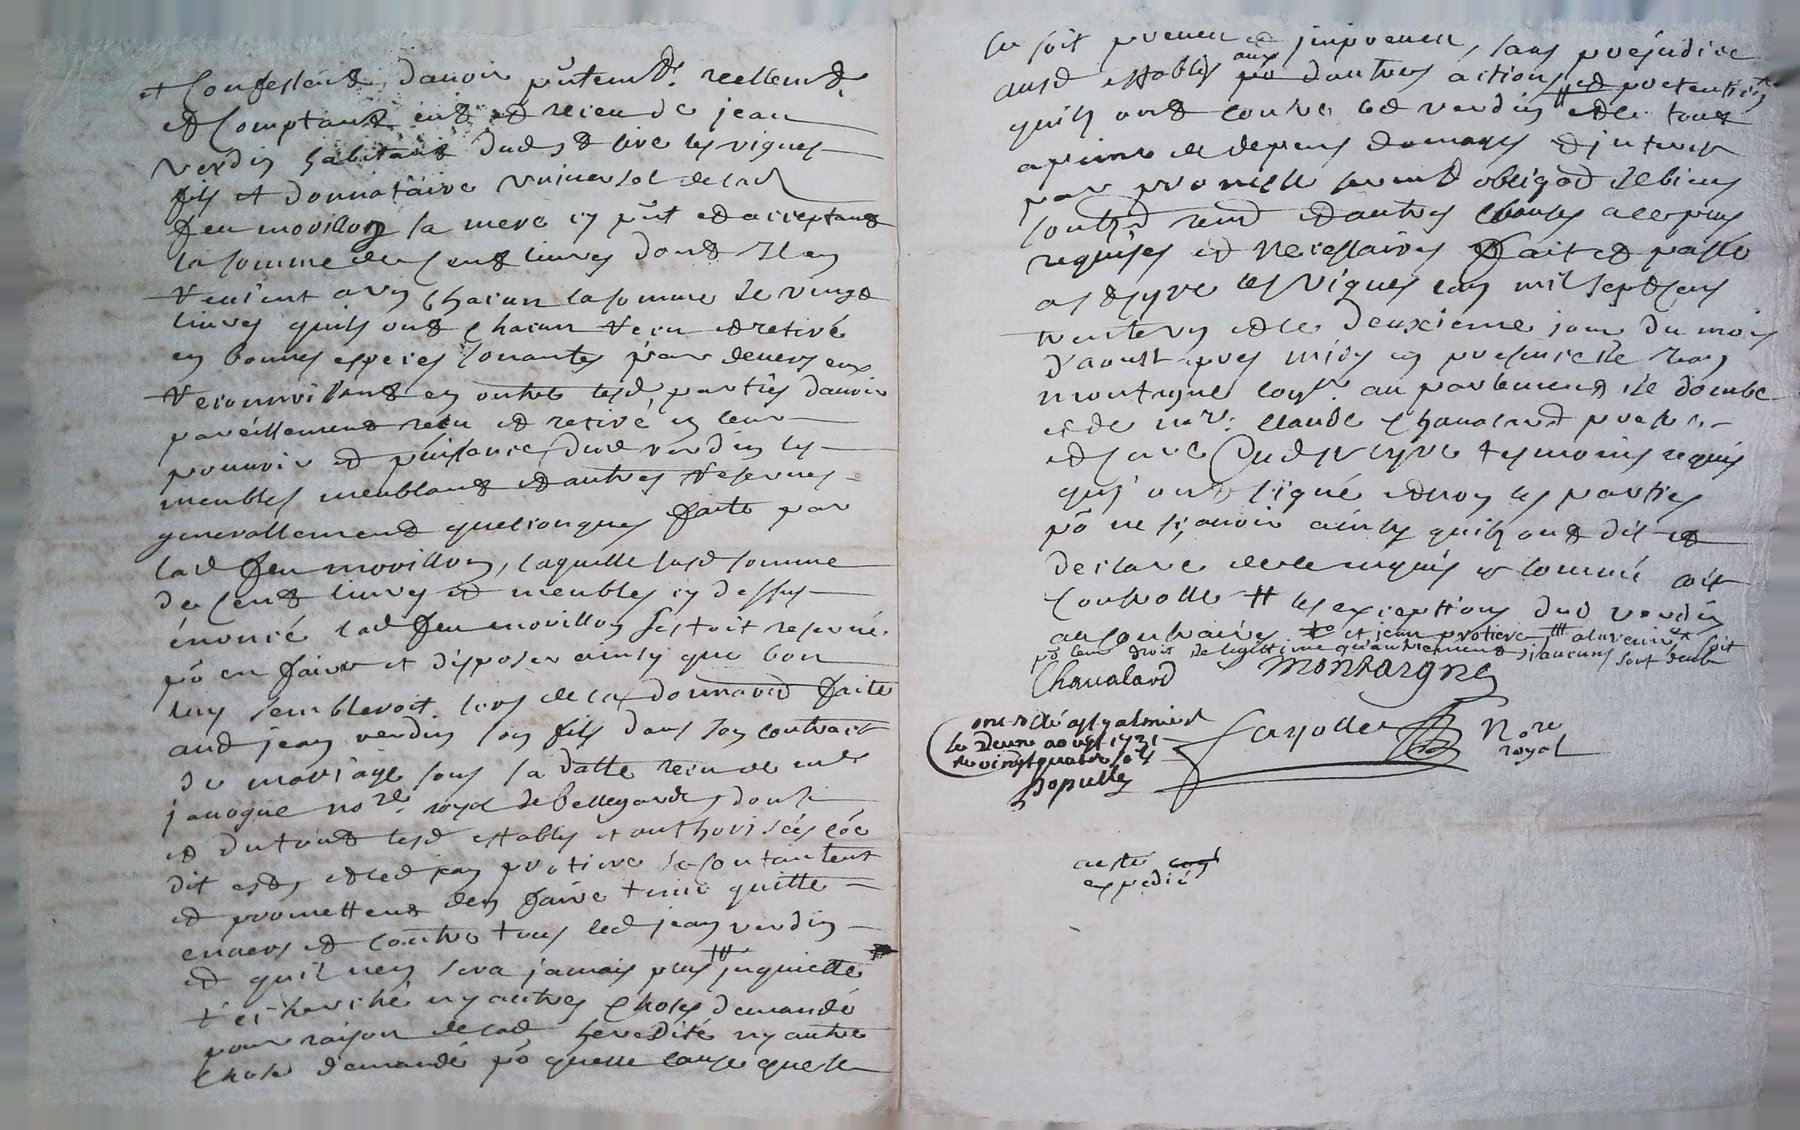 et Confessent d'avoir pntemt. reellemt.
et Comptant eus et receu de jean
verdin habitant dud st cire les vignes
fils et donnataire universel de lad
feu movillon sa mere cy pnt et acceptant
la somme de cent livres dont Il en
revient a un chacun la somme de vingt
livres quils ont chacun receu et retiré
en bonnes especes sonantes par devers eux
reconnoissant en outre lesd parties d'avoir
pareillement receu et retiré en leur
pouvoir et puissance dud verdin les
meubles meublant et autres reserves
generallement quelconques faite par
lad feu movillon, laquelle susd somme
de cent livres et meubles cy dessus
énoncé lad feu movillon sestoit reservé
pō en faire et disposer ainsy que bon
luy sembleroit lors de la donnaōn faite
aud jean verdin son fils dans son contract
de mariage sous sa datte receu de me
janogue nore royal de bellegarde, dont
et du tout lesd establis et authorisées cōe
dit est, et led jean protiere se contantent
et promettent den faire tenir quitte
envers et contre tous led jean verdin
et quil nen sera jamais plus inquietté
recherché ny autres choses demandé
pour raison de lad heredité ny autre
chose demandé pō quelle cause que se
ce soit preveu et jmpreveu, sans prejudice
ausd establis aux po d'autres actions et pretentions
quils ont contre led verdin et le tout
a peine de depens domages et jnterest
par promesse serment obligaōn de biens
soubmōn renōn et autres clauses a ce plus
requises et necessaires fait et passé
a st cyre les vignes lan mil sept cens
trente un et le deuxieme jour du mois
d'aoust apres midy en presence de Jean
montagne coer. au parlement de dombe
et de mre. claude chavaland prestre
et jave tesmoins requis
qui ont signé et non les parties
pō ne sçavoir ainsy quils ont dit et
declaré de ce enquis et sommé soit
controllé # les exceptions dud verdin
au contraires et jean protiere a lavenir soit
pō leur droit de legittime quautrement si aucuns sont deub
Chavaland Montaigne
controllé a st galmier
le deux aoust 1731
R vingt quatre sols
Populle
fayolles Nore
royal
acste
expedié